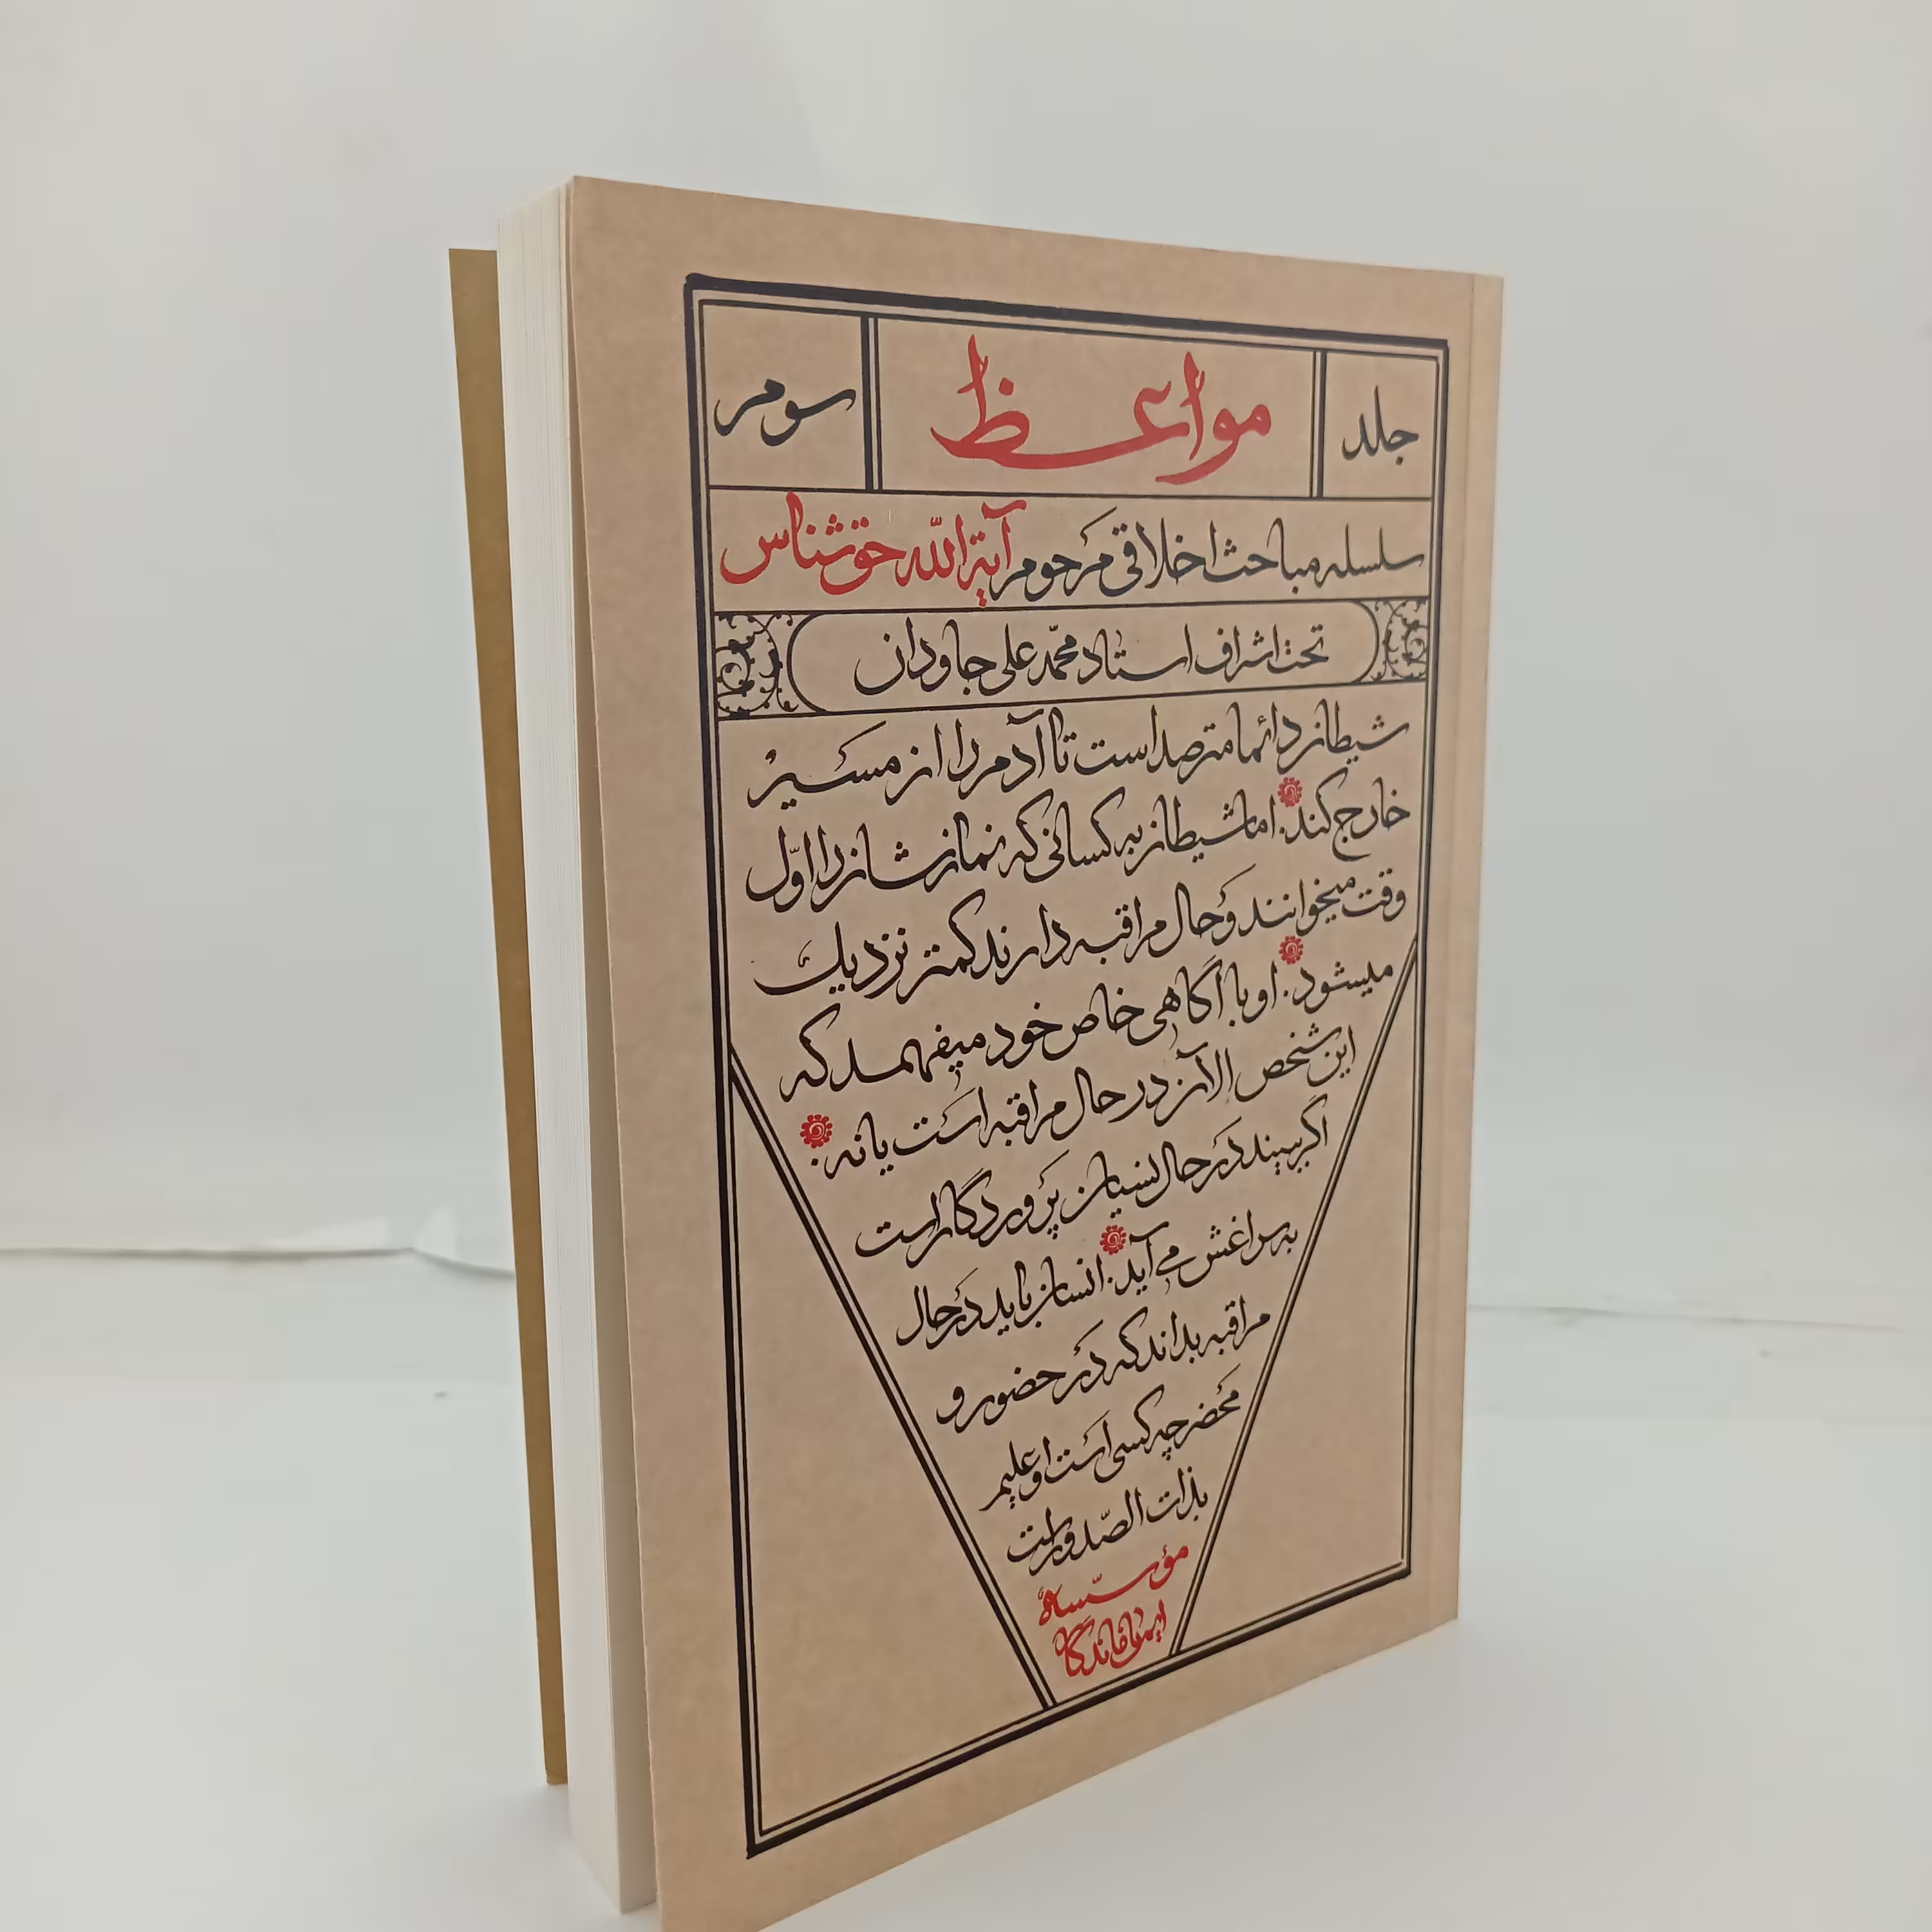 جلد مواعظ سوم
سلسله مباحث اخلاقی مرحوم آیة الله حق‌شناس
تحت اشراف استاد محمّد علی جاودان
شیطان دائما مترصد است تا آدم را از مسیر
خارج کند. اما شیطان به کسانی که نمازشان را اوّل
وقت میخوانند و حال مراقبه دارند کمتر نزدیک
میشود. او با آگاهی خاص خود میفهمد که
این شخص الآن در حال مراقبه است یا نه.
اگر ببیند در حال نسیان پروردگار است
به سراغش می آید. انسان باید در حال
مراقبه بداند که در حضور و
محضر چه کسی است او علیم
بذات الصّدور است
مؤسّسه
ایمان ماندگار